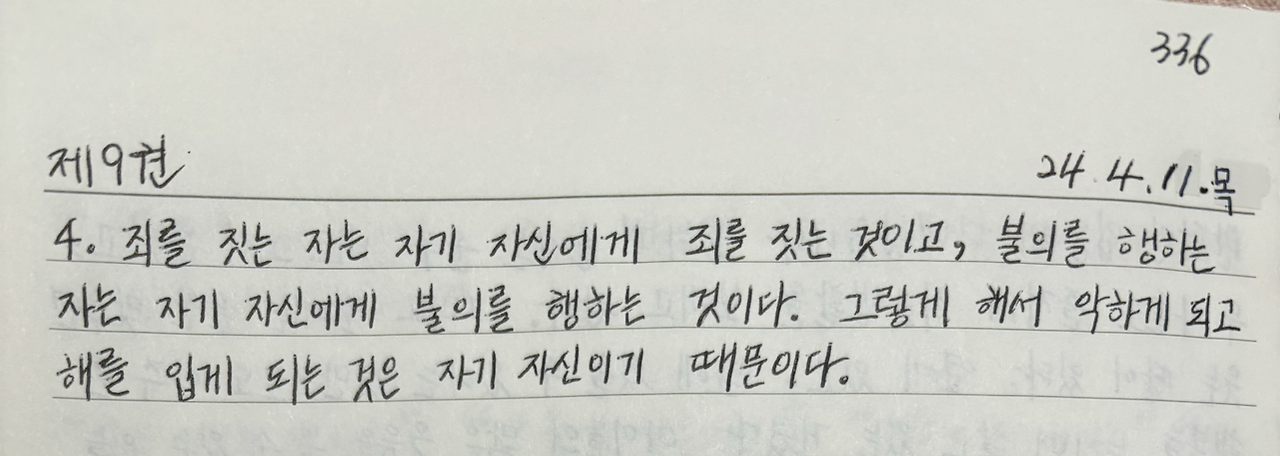 336
제9권
24.4.11.목
4. 죄를 짓는 자는 자기 자신에게 죄를 짓는 것이고, 불의를 행하는
자는 자기 자신에게 불의를 행하는 것이다. 그렇게 해서 악하게 되고
해를 입게 되는 것은 자기 자신이기 때문이다.